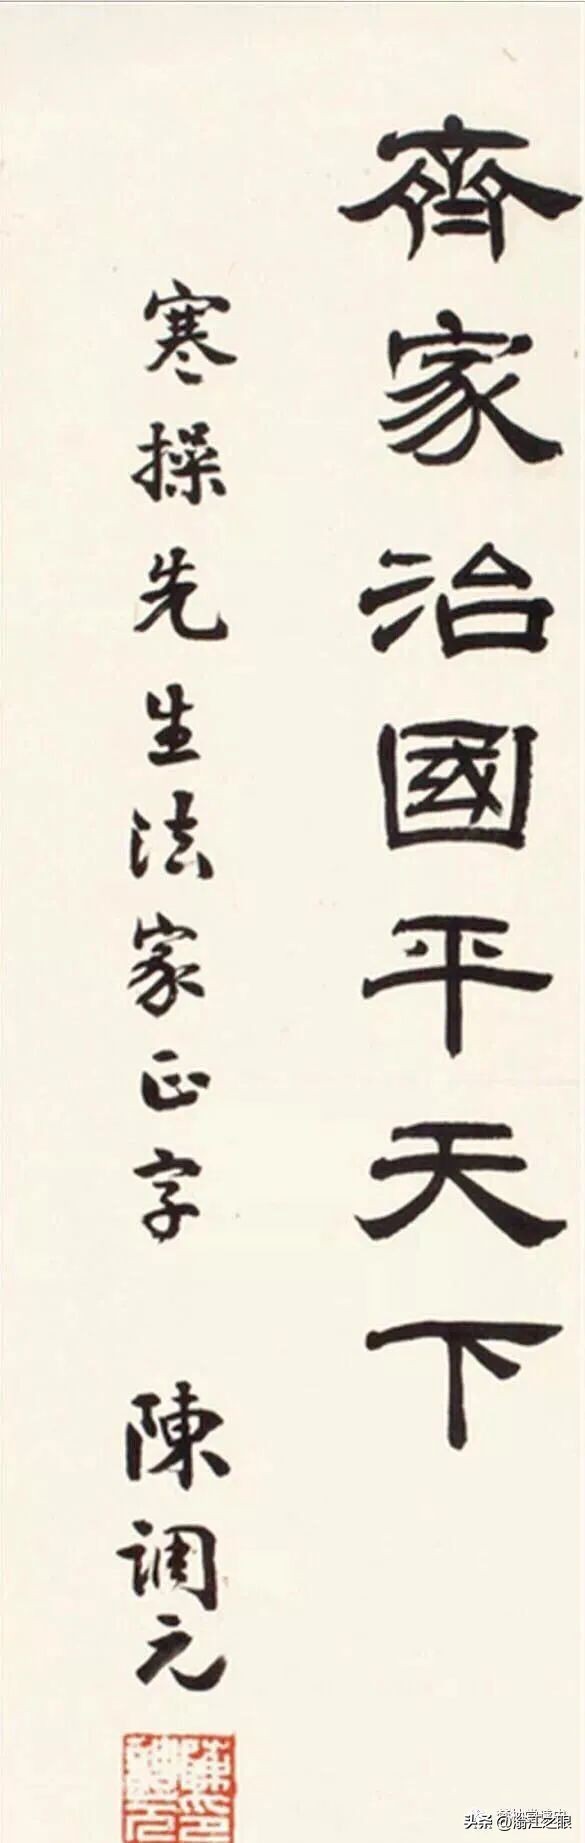 齊家治國平天下
寒操先生法家正字
陳調元
头条@渝江之眼